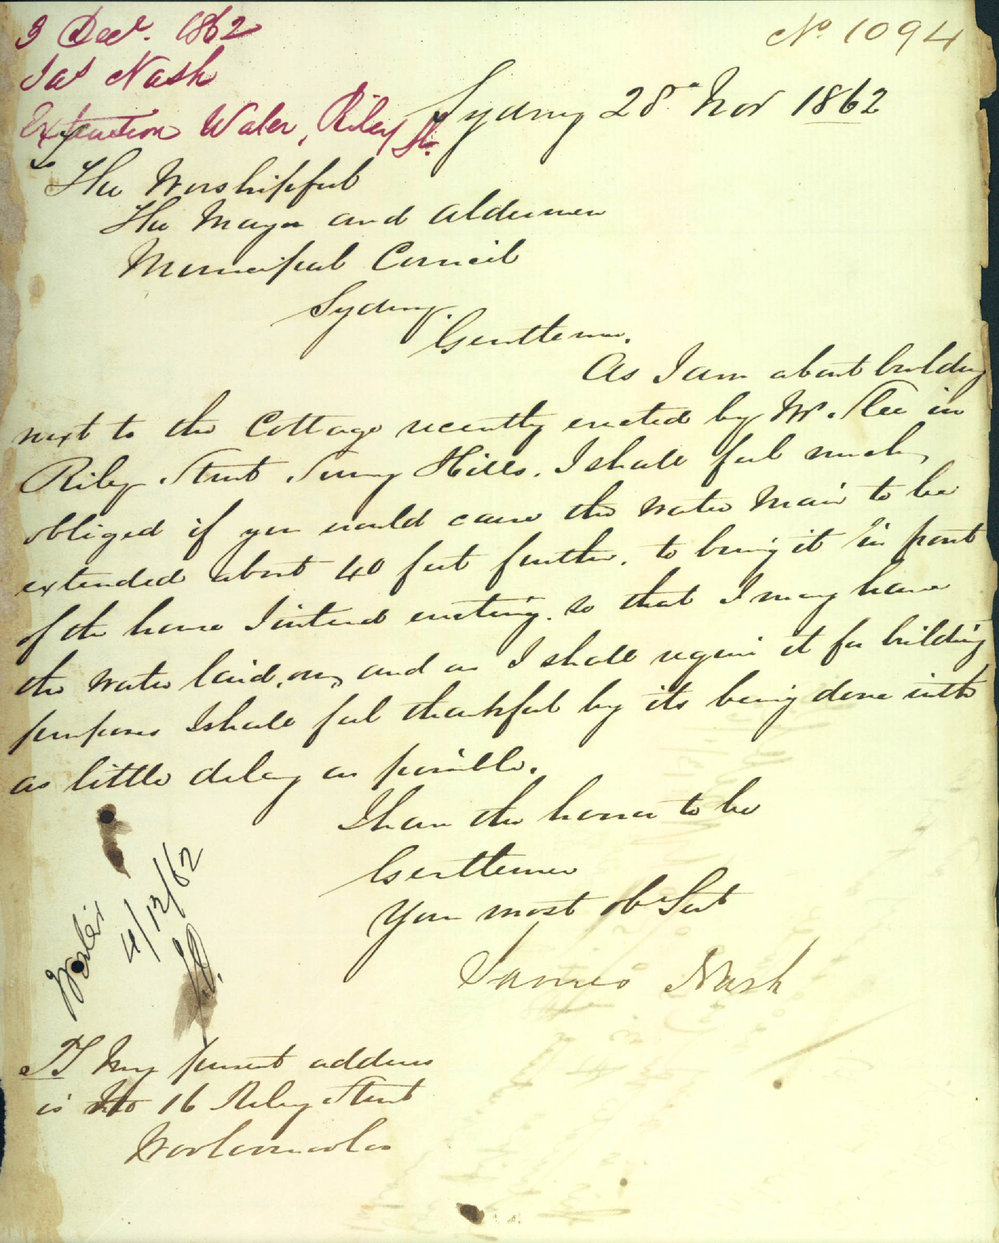 3 Decr. 1862
Jas Nash
Extension Water, Riley St.
No 1094
Sydney 28th Nov 1862
To
The Worshipful
The Mayor and Aldermen
Municipal Council
Sydney.
Gentlemen.
As I am about building
next to the Cottage recently erected by Mr. Slee in
Riley Street Surry Hills. I shall feel much
obliged if you would cause the water Main to be
extended about 40 feet further. to bring it in front
of the house I intend erecting. so that I may have
the water laid on, and as I shall require it for building
purposes I shall feel thankful by its being done with
as little delay as possible.
I have the honor to be
Gentlemen
Your most Obt Servt
James Nash
Works
4/12/62
PS My present address
is No 16 Riley Street
Woolloomooloo